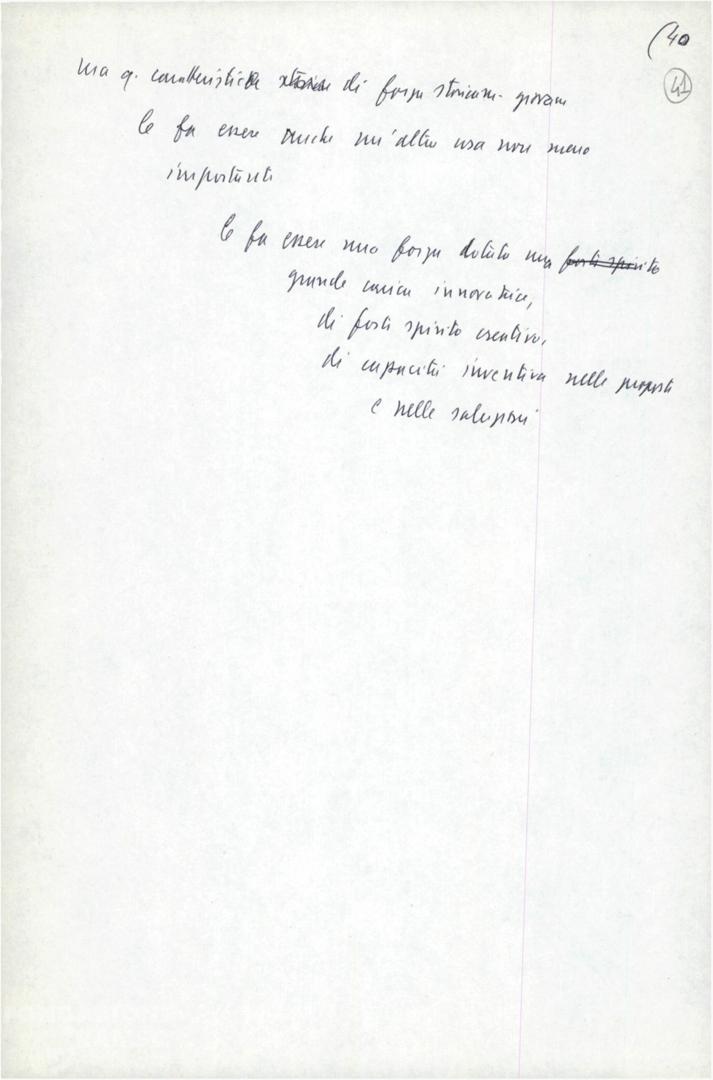 (40
41
ma q. caratteristica storica di forza storicam. giovane
le fa essere anche un'altra cosa non meno
importante
le fa essere una forza dotata una forte spirito
grande carica innovatrice,
di forte spirito creativo,
di capacità inventiva nelle proposte
e nelle soluzioni